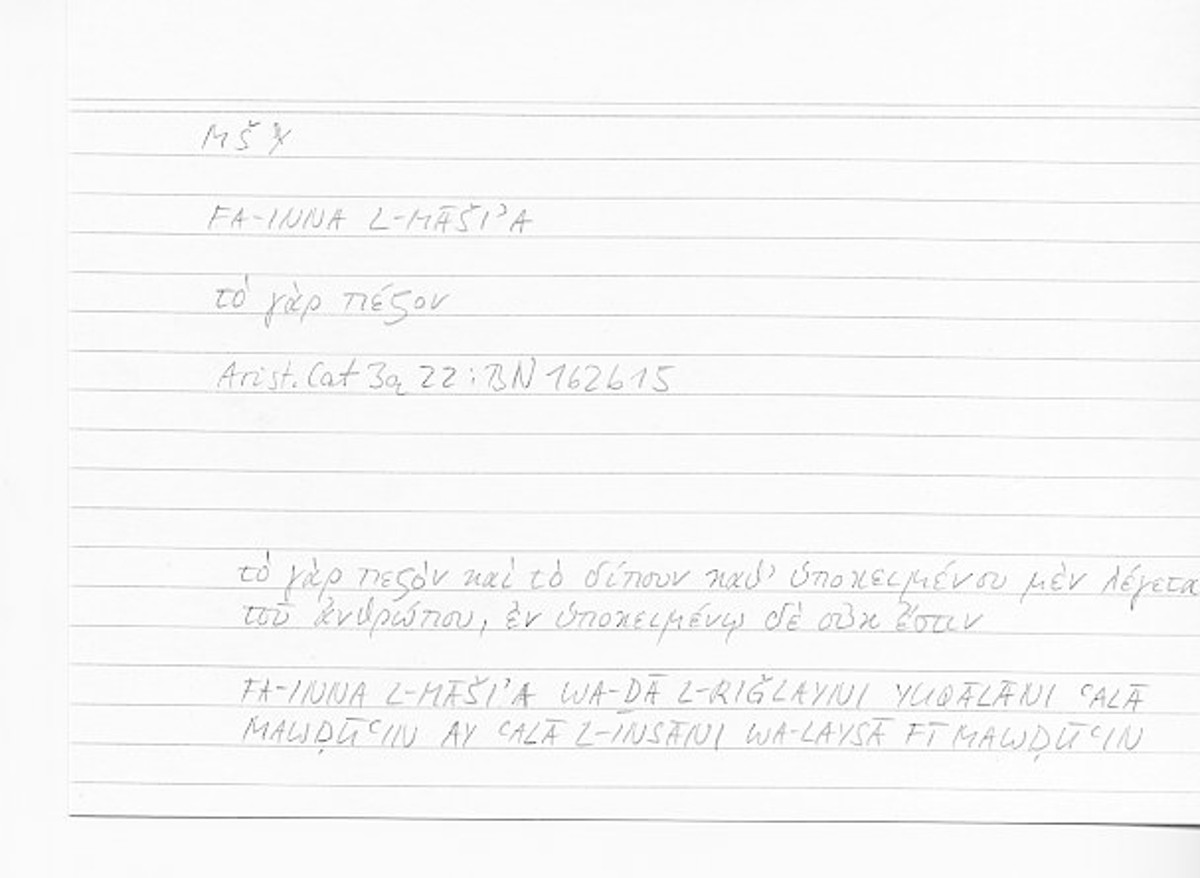 MŠY
FA-INNA L-MĀŠIʾA
τὸ γὰρ πέζον
Arist. Cat 3a 22 : BN 162b15
τὸ γὰρ πεζὸν καὶ τὸ δίπουν καθ' ὑποκειμένου μὲν λέγεται
τοῦ ἀνθρώπου, ἐν ὑποκειμένῳ δὲ οὐκ ἔστιν
FA-INNA L-MĀŠIʾA WA-ḎĀ L-RIǦLAYNI YUQĀLĀNI ʿALĀ
MAWḌŪʿIN AY ʿALĀ L-INSĀNI WA-LAYSĀ FĪ MAWḌŪʿIN